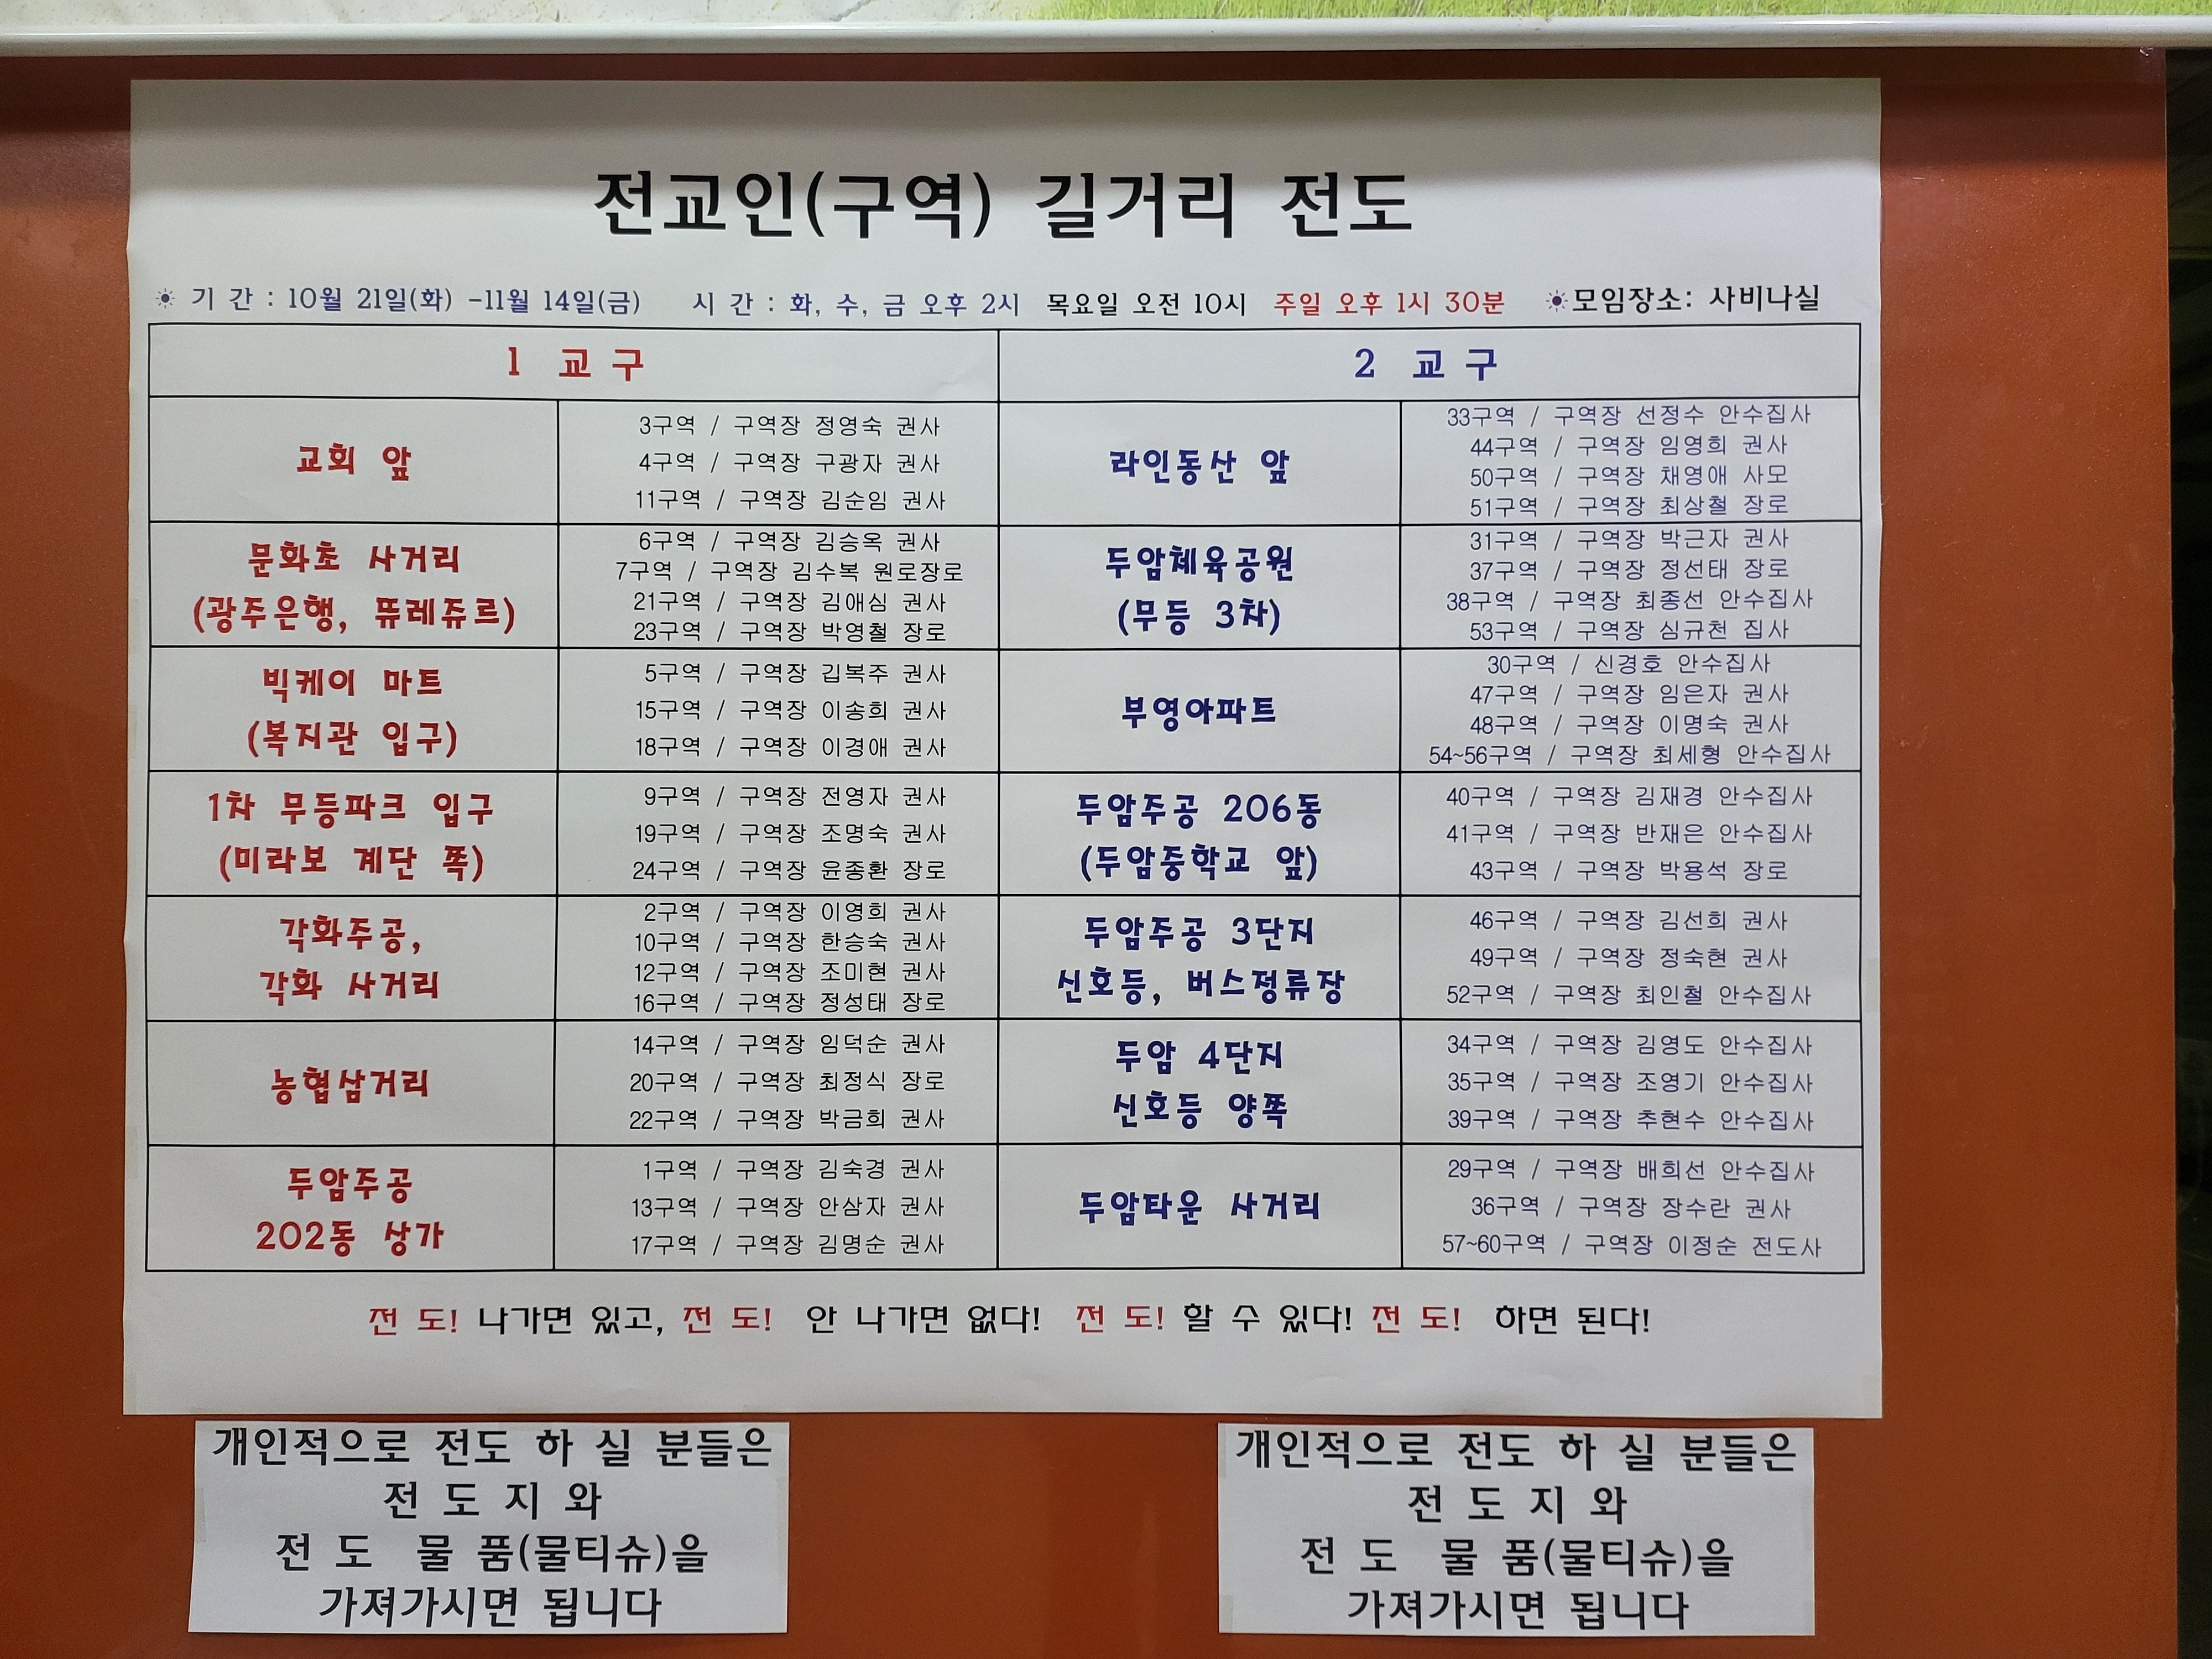 전교인(구역) 길거리 전도
☀ 기 간 : 10월 21일(화) -11월 14일(금) 시 간 : 화, 수, 금 오후 2시 목요일 오전 10시 주일 오후 1시 30분 ☀모임장소: 사비나실
1 교 구
2 교 구
교회 앞
3구역 / 구역장 정영숙 권사
4구역 / 구역장 구광자 권사
11구역 / 구역장 김순임 권사
라인동산 앞
33구역 / 구역장 선정수 안수집사
44구역 / 구역장 임영희 권사
50구역 / 구역장 채영애 사모
51구역 / 구역장 최상철 장로
문화초 사거리
(광주은행, 뜌레쥬르)
6구역 / 구역장 김승옥 권사
7구역 / 구역장 김수복 원로장로
21구역 / 구역장 김애심 권사
23구역 / 구역장 박영철 장로
두암체육공원
(무등 3차)
31구역 / 구역장 박근자 권사
37구역 / 구역장 정선태 장로
38구역 / 구역장 최종선 안수집사
53구역 / 구역장 심규천 집사
빅케이 마트
(복지관 입구)
5구역 / 구역장 김복주 권사
15구역 / 구역장 이송희 권사
18구역 / 구역장 이경애 권사
부영아파트
30구역 / 신경호 안수집사
47구역 / 구역장 임은자 권사
48구역 / 구역장 이명숙 권사
54~56구역 / 구역장 최세형 안수집사
1차 무등파크 입구
(미라보 계단 쪽)
9구역 / 구역장 전영자 권사
19구역 / 구역장 조명숙 권사
24구역 / 구역장 윤종환 장로
두암주공 206동
(두암중학교 앞)
40구역 / 구역장 김재경 안수집사
41구역 / 구역장 반재은 안수집사
43구역 / 구역장 박용석 장로
각화주공,
각화 사거리
2구역 / 구역장 이영희 권사
10구역 / 구역장 한승숙 권사
12구역 / 구역장 조미현 권사
16구역 / 구역장 정성태 장로
두암주공 3단지
신호등, 버스정류장
46구역 / 구역장 김선희 권사
49구역 / 구역장 정숙현 권사
52구역 / 구역장 최인철 안수집사
농협삼거리
14구역 / 구역장 임덕순 권사
20구역 / 구역장 최정식 장로
22구역 / 구역장 박금희 권사
두암 4단지
신호등 양쪽
34구역 / 구역장 김영도 안수집사
35구역 / 구역장 조영기 안수집사
39구역 / 구역장 추현수 안수집사
두암주공
202동 상가
1구역 / 구역장 김숙경 권사
13구역 / 구역장 안삼자 권사
17구역 / 구역장 김명순 권사
두암타운 사거리
29구역 / 구역장 배희선 안수집사
36구역 / 구역장 장수란 권사
57~60구역 / 구역장 이정순 전도사
전 도! 나가면 있고, 전 도! 안 나가면 없다! 전 도! 할 수 있다! 전 도! 하면 된다!
개인적으로 전도 하 실 분들은
전 도 지 와
전 도 물 품(물티슈)을
가져가시면 됩니다
개인적으로 전도 하 실 분들은
전 도 지 와
전 도 물 품(물티슈)을
가져가시면 됩니다